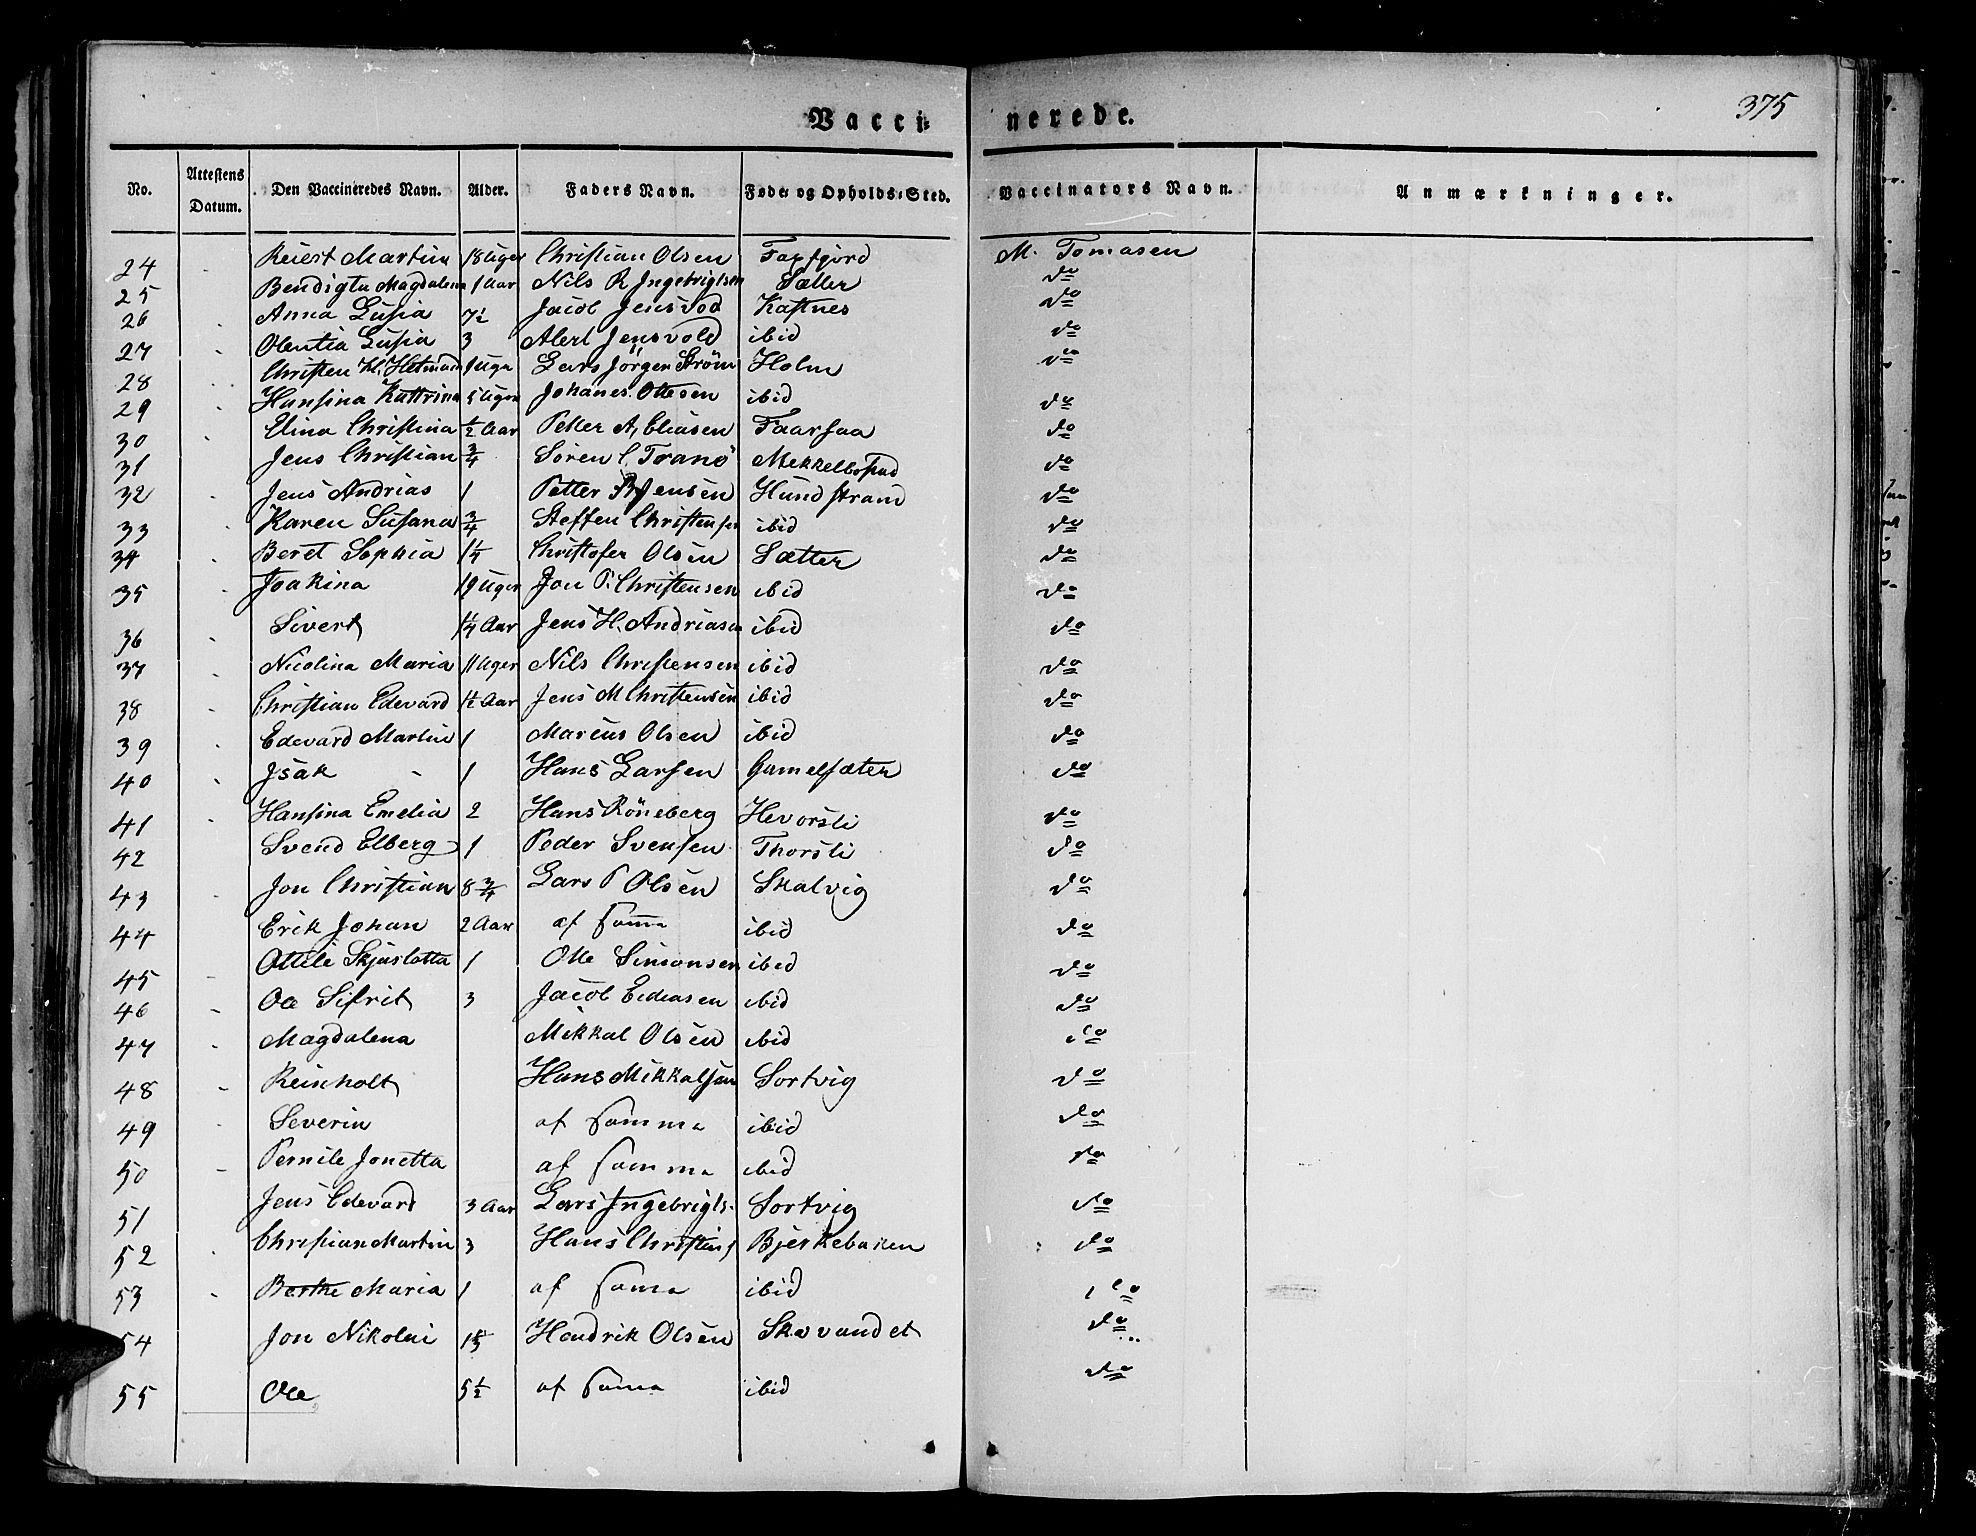 Vacci-
nerede.
375
No. Attestens Datum. Den Vaccineredes Navn. Alder. Faders Navn. Føde- og Opholds-Sted. Vaccinators Navn. Anmærkninger.
24 Reiert Martin 18 Uger Christian Olsen Faxfjord M. Tomasen
25 Bendigta Magdalena 1 Aar Nils R Ingebrigtsen Sætter do
26 Anna Lusia 7½ Jacob Jensvod Kastnes do
27 Olentia Lusia 3 Abert Jensvold ibid do
28 Christen H. Hetman Uger Lars Jörgen Ström Holm do
29 Hansina Kattrina 5 Uger Johanes Ottesen ibid do
30 Elina Christina ½ Aar Petter A, Eliasen Faarsaa do
31 Jens Christian ¾ Sören C. Tranö Mekkelbostad do
32 Jens Andrias 1 Petter Jensen Hundstrand do
33 Karen Susana ¾ Steffen Christensen ibid do
34 Beret Sophia 1¼ Christofer Olsen Sætter do
35 Joakina 19 Uger Jon P. Christensen ibid do
36 Sivert 1¼ Aar Jens H. Andriasen ibid do
37 Nicolina Maria 11 Uger Nils Christensen ibid do
38 Christian Edevard 1½ Aar Jens M Christensen ibid do
39 Edevard Martin 1 Marcus Olsen ibid do
40 Jsak 1 Hans Larsen Gamelsæter do
41 Hansina Emelia 2 Hans Röneberg Hevorsli do
42 Svend Elberg 1 Peder Svensen Thorsli do
43 Jon Christian 8¾ Lars P Olsen Skalvig do
44 Erik Johan 2 Aar af samme ibid do
45 Ottile Skjarlotta 1 Otte Simonsen ibid do
46 Ole Sifrit 3 Jacob Ediasen ibid do
47 Magdalena Mikkal Olsen ibid do
48 Reinholt Hans Mikkalsen Sortvig do
49 Severin af samma ibid do
50 Pernile Jonetta af samma ibid do
51 Jens Edevard 3 Aar Lars Ingebrigts. Sortvig do
52 Christian Martin 3 Hans Christins Bjerkebaken do
53 Berthe Maria 1 af sama ibid do
54 Jon Nikolai Hendrik Olsen Skavandet do
55 Ole 5½ af sama ibid do